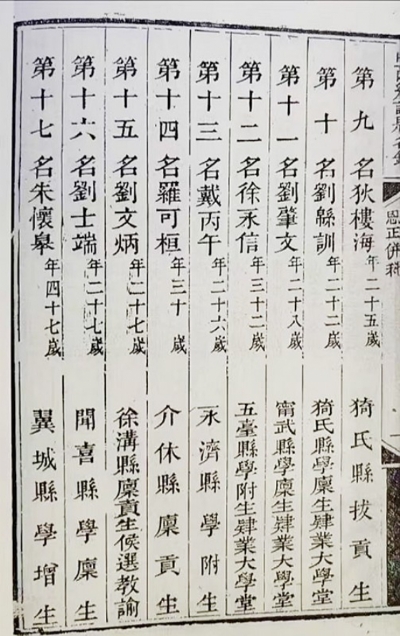 恩正併科
第九名狄樓海年二十五歲 猗氏縣拔貢生
第十名劉緜訓年二十二歲 猗氏縣學廩生肄業大學堂
第十一名劉肇文年二十八歲 甯武縣學廩生肄業大學堂
第十二名徐永信年三十二歲 五臺縣學附生肄業大學堂
第十三名戴丙午年二十六歲 永濟縣學附生
第十四名羅可桓年三十歲 介休縣廩貢生
第十五名劉文炳年二十七歲 徐溝縣廩貢生候選教諭
第十六名劉士端年二十七歲 聞喜縣學廩生
第十七名朱懷皋年四十七歲 翼城縣學增生